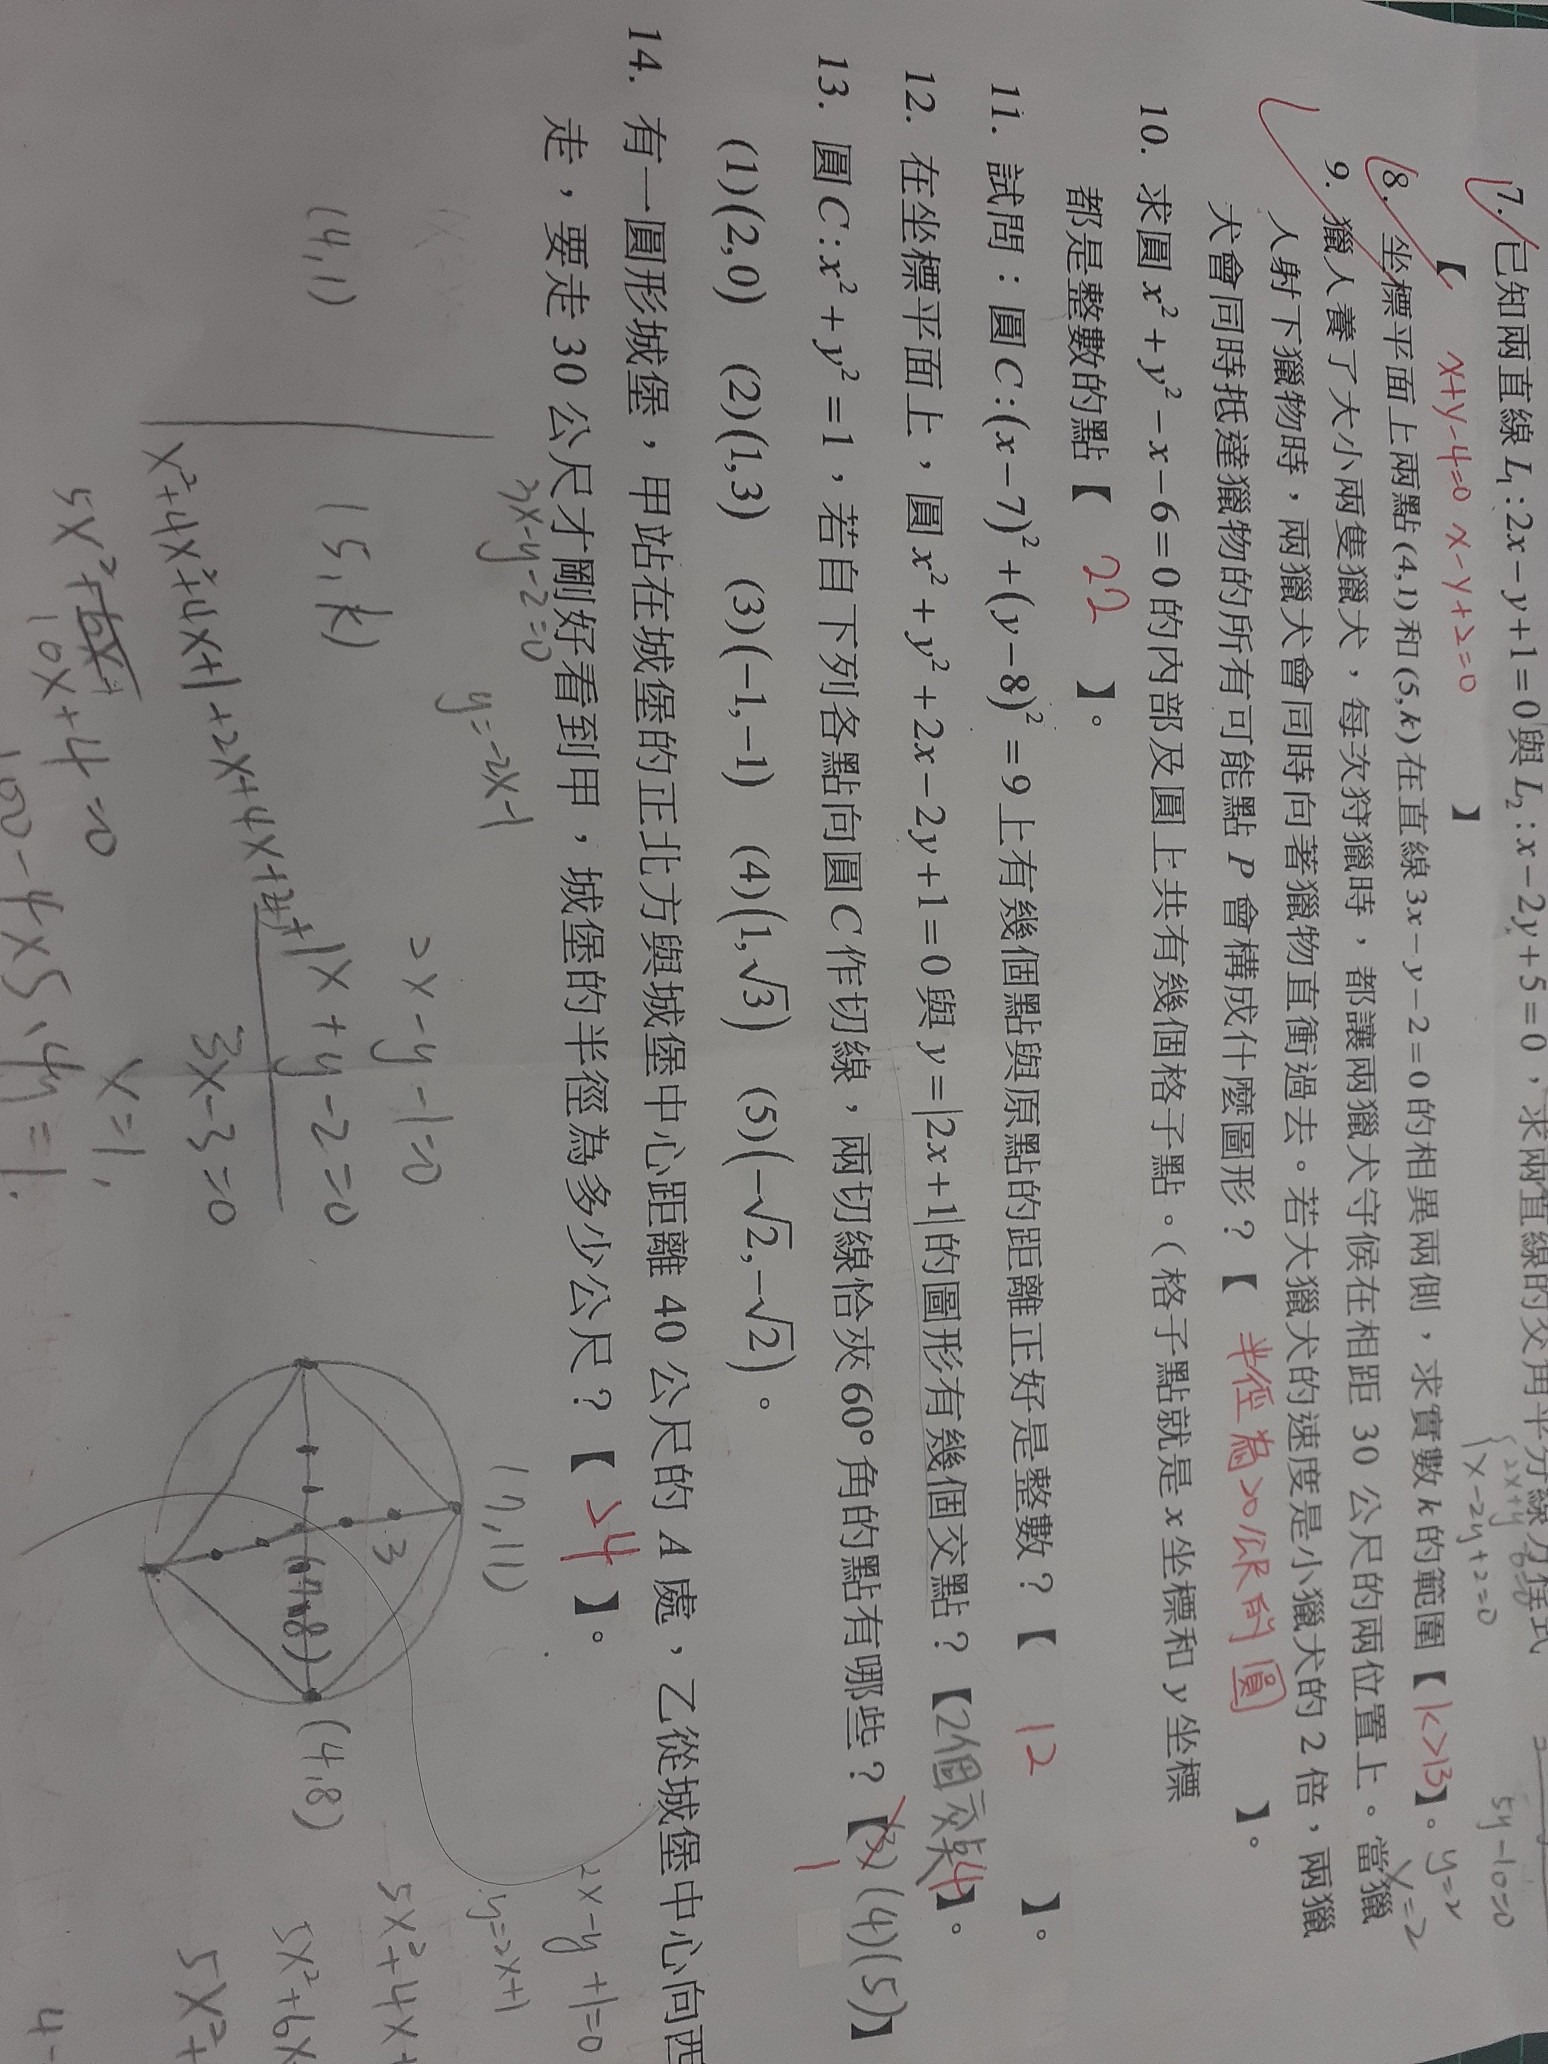 7. 已知兩直線 L₁:2x−y+1=0與 L₂:x−2y+5=0，求兩直線的交角平分線方程式
【 x+y-4=0 x-y+2=0 】
8. 坐標平面上兩點(4,1)和(5,k)在直線3x−y−2=0的相異兩側，求實數k的範圍【k>13】。
9. 獵人養了大小兩隻獵犬，每次狩獵時，都讓兩獵犬守候在相距 30 公尺的兩位置上。當獵
人射下獵物時，兩獵犬會同時向著獵物直衝過去。若大獵犬的速度是小獵犬的 2 倍，兩獵
犬會同時抵達獵物的所有可能點 P 會構成什麼圖形？【 半徑為20公尺的圓 】。
10. 求圓 x²+y²−x−6=0的內部及圓上共有幾個格子點。(格子點就是x坐標和y坐標
都是整數的點【 22 】。
11. 試問：圓C:(x−7)²+(y−8)²=9上有幾個點與原點的距離正好是整數？【 12 】。
12. 在坐標平面上，圓x²+y²+2x−2y+1=0與y=|2x+1|的圖形有幾個交點？【2個交點4】。
13. 圓C:x²+y²=1，若自下列各點向圓C作切線，兩切線恰夾60°角的點有哪些？【(3)(4)(5)】
1
(1)(2,0) (2)(1,3) (3)(−1,−1) (4)(1,√3) (5)(−√2,−√2)。
14. 有一圓形城堡，甲站在城堡的正北方與城堡中心距離 40 公尺的 A 處，乙從城堡中心向西
走，要走 30 公尺才剛好看到甲，城堡的半徑為多少公尺？【 24 】。
x-2y+2=0
5y-10=0
y=2
x=2
3x-y-2=0
y=-2x-1
2x-y+1=0
y=2x+1
(4,1)
(5,k)
2x-y-1=0
x+y-2=0
3x-3=0
x=1,
(7,11)
3
(7,8)
(4,8)
x²+4x²+4x+1+2x+4x+2+1
5x²+6x+
10x+4=0
100-4×5×4=1
5x²+4x+
5x²+6x
5x²+
4-